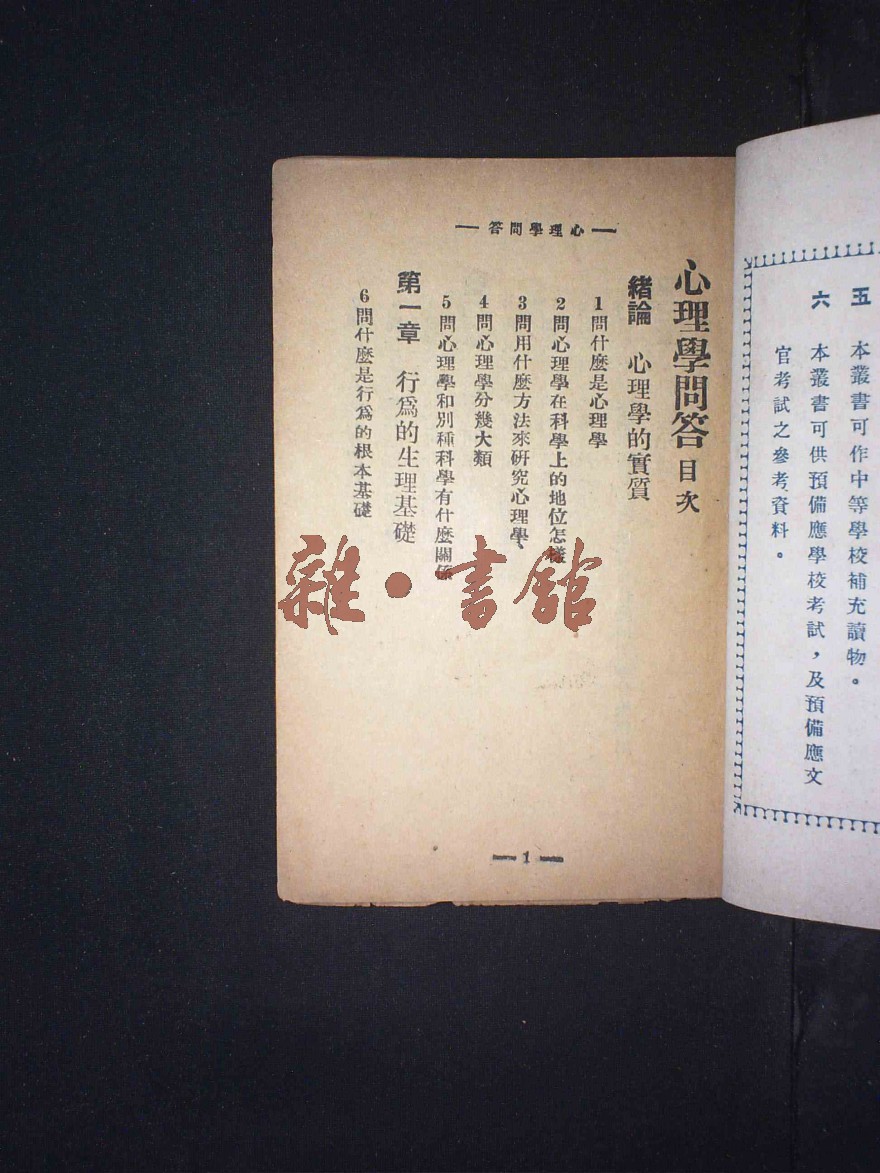 五 本叢書可作中等學校補充讀物。
六 本叢書可供預備應學校考試,及預備應文
官考試之參考資料。
心理學問答
心理學問答 目次
緒論 心理學的實質
1 問什麼是心理學
2 問心理學在科學上的地位怎樣
3 問用什麼方法來研究心理學、
4 問心理學分幾大類
5 問心理學和別種科學有什麼關係
第一章 行爲的生理基礎
6 問什麼是行爲的根本基礎
1
雜·書館